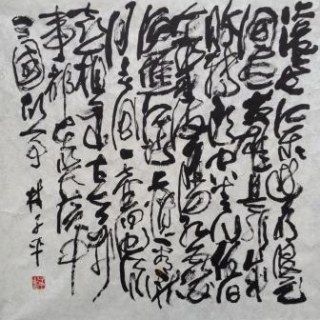 滚滚长江东逝水浪花
淘尽英雄是非成
败转头空青山依旧
在几度夕阳红白发
渔樵江渚上惯看秋
月春风一壶浊酒
喜相逢古今多少
事都付笑谈中
三國